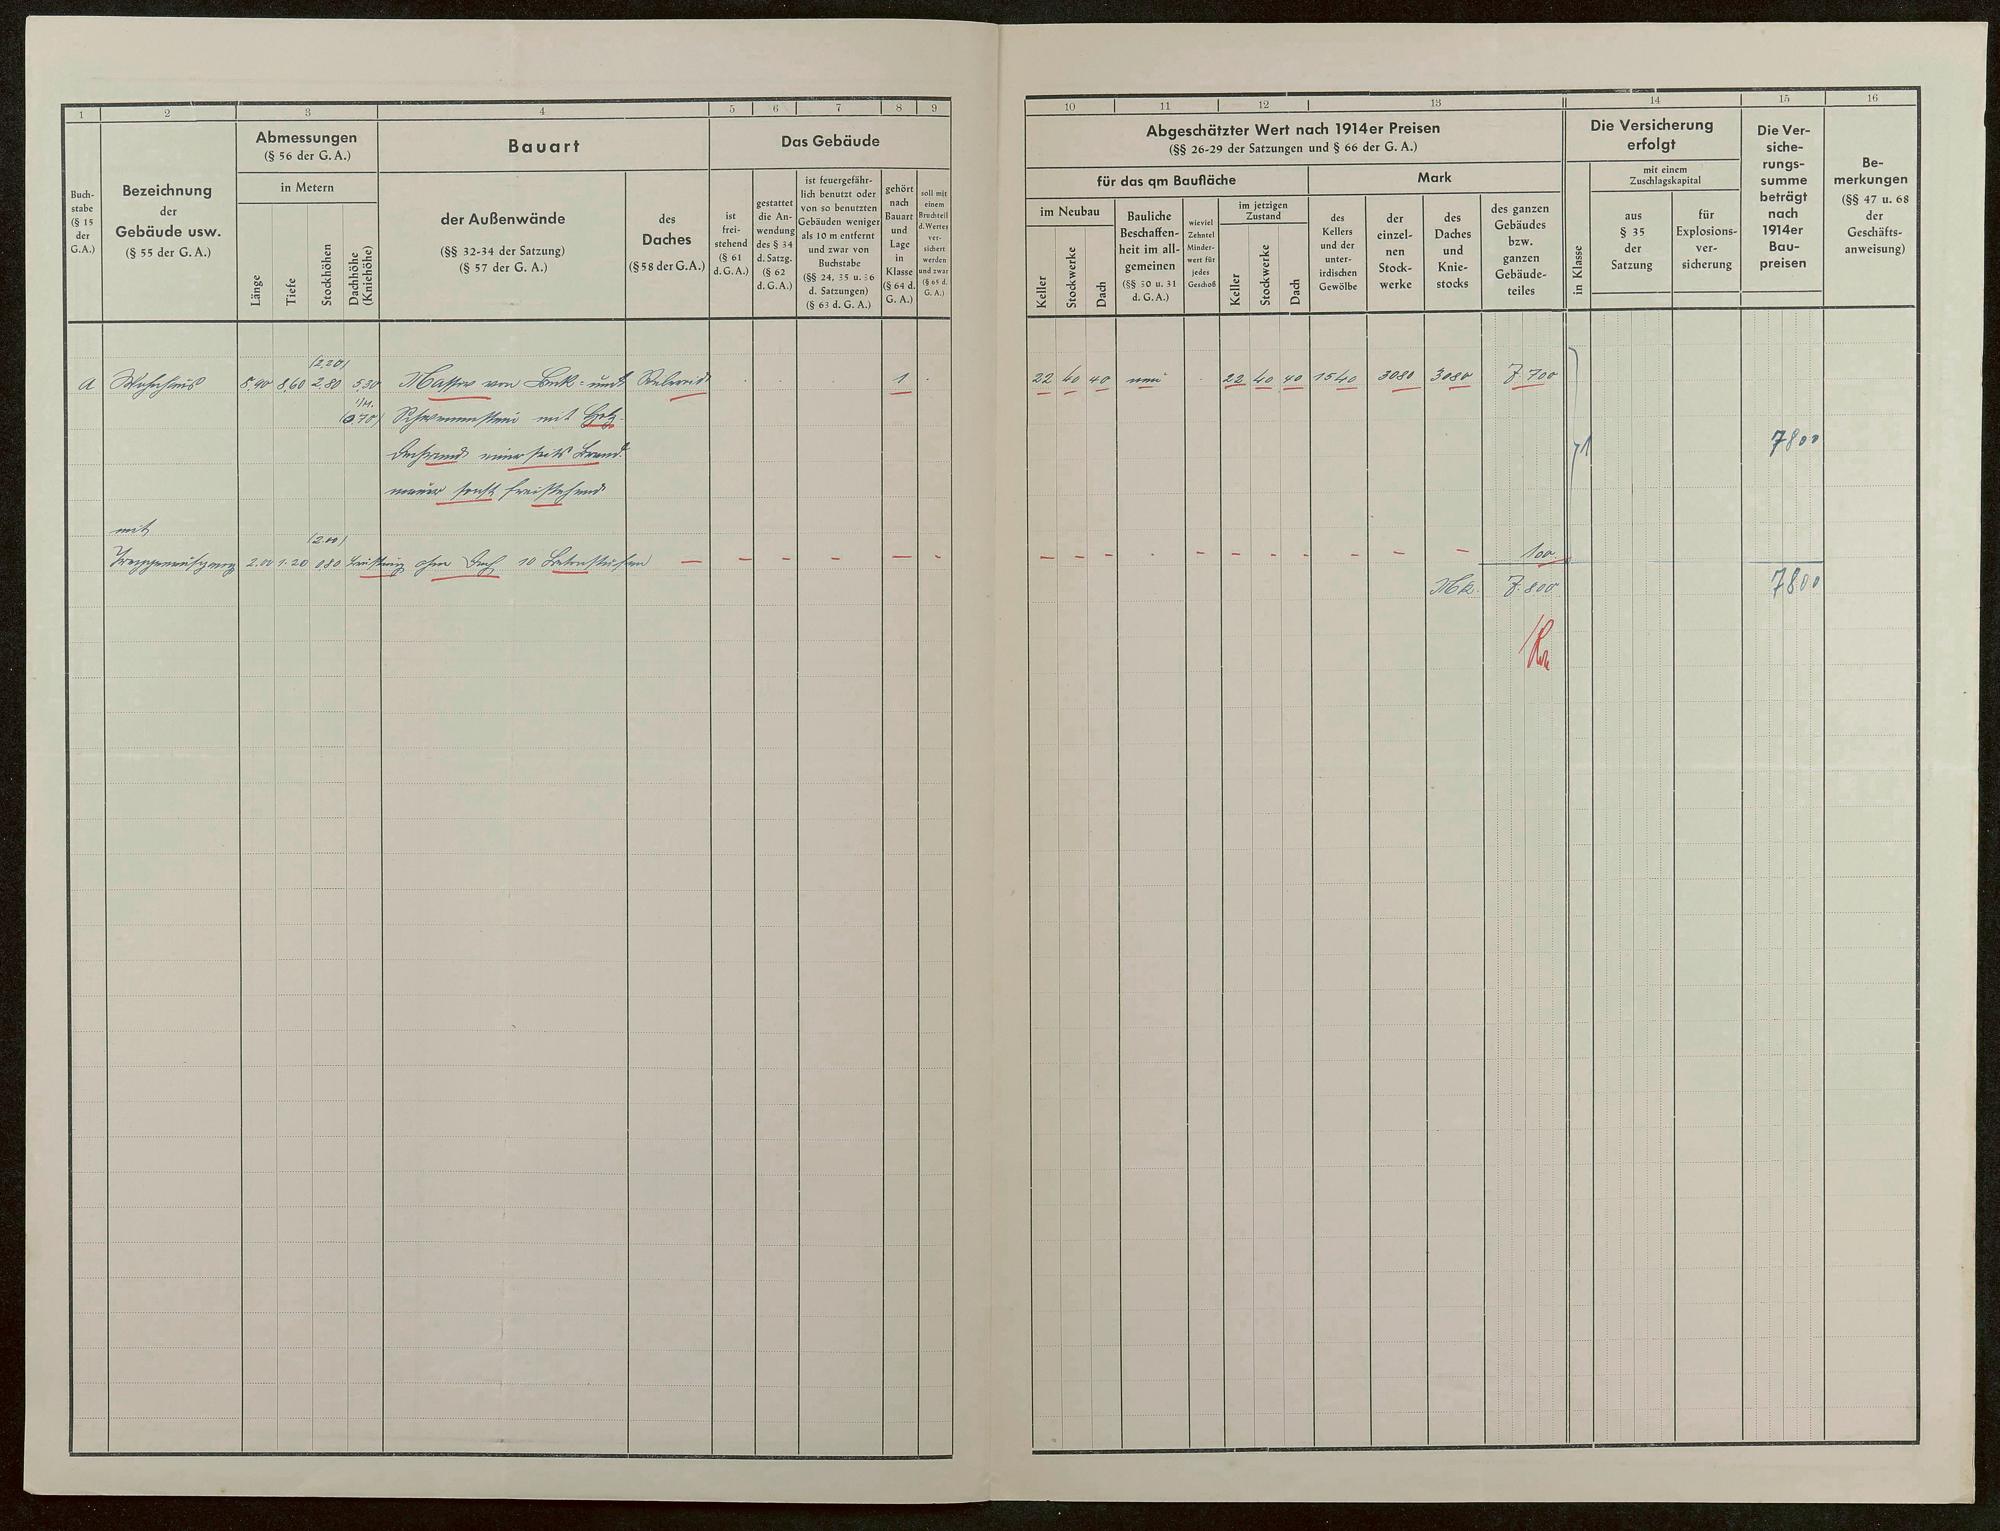 1 2 3 4 5 6 7 8 9
Buch-
stabe
(§ 15
der
G.A.)
Bezeichnung
der
Gebäude usw.
(§ 55 der G. A.)
Abmessungen
(§ 56 der G. A.)
in Metern
Länge
Tiefe
Stockhöhen
Dachhöhe
(Kniehöhe)
Bauart
der Außenwände
(§§ 32-34 der Satzung)
(§ 57 der G. A.)
des
Daches
(§ 58 der G. A.)
Das Gebäude
ist
frei-
stehend
(§ 61
d. G. A.)
gestattet
die An-
wendung
des § 34
d. Satzg.
(§ 62
d. G. A.)
ist feuergefähr-
lich benutzt oder
von so benutzten
Gebäuden weniger
als 10 m entfernt
und zwar von
Buchstabe
(§§ 24, 35 u. 36
d. Satzungen)
(§ 63 d. G. A.)
gehört
nach
Bauart
und
Lage
in
Klasse
(§ 64 d.
G. A.)
soll mit
einem
Bruchteil
d. Wertes
ver-
sichert
werden
und zwar
(§ 65 d.
G. A.)
(2,20)
a Wohnhaus 8,90 8,60 2,80 5,30 Massiv von und 1
(0,70) Schwemmstein mit Holz-
einerseits Brand-
mauer sonst freistehend
mit
(2.00)
2.00 1.20 0.80 ohne Dach 10 Betonstufen — — — — — -
10 11 12 13 14 15 16
Abgeschätzter Wert nach 1914er Preisen
(§§ 26-29 der Satzungen und § 66 der G. A.)
für das qm Baufläche
im Neubau
Keller
Stockwerke
Dach
Bauliche
Beschaffen-
heit im all-
gemeinen
(§§ 30 u. 31
d. G. A.)
wieviel
Zehntel
Minder-
wert für
jedes
Geschoß
im jetzigen
Zustand
Keller
Stockwerke
Dach
Mark
des
Kellers
und der
unter-
irdischen
Gewölbe
der
einzel-
nen
Stock-
werke
des
Daches
und
Knie-
stocks
des ganzen
Gebäudes
bzw.
ganzen
Gebäude-
teiles
Die Versicherung
erfolgt
in Klasse
mit einem
Zuschlagskapital
aus
§ 35
der
Satzung
für
Explosions-
ver-
sicherung
Die Ver-
siche-
rungs-
summe
beträgt
nach
1914er
Bau-
preisen
Be-
merkungen
(§§ 47 u. 68
der
Geschäfts-
anweisung)
22 40 40 neu 22 40 40 1540 3080 3080 7.700
1 7800
100.
Mk. 7.800 7800